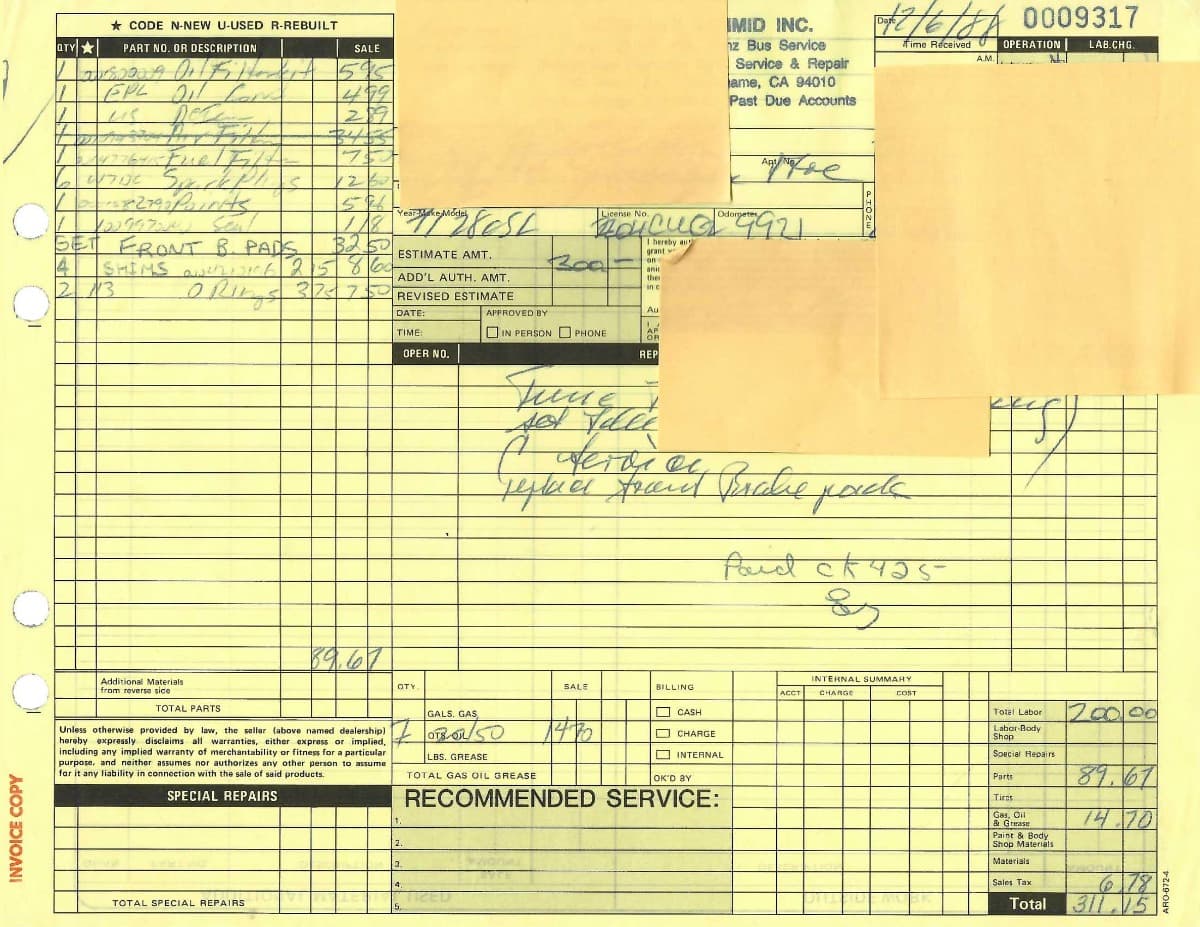 ★ CODE N-NEW U-USED R-REBUILT
QTY ★ PART NO. OR DESCRIPTION SALE
1 Oil Filter kit 5 95
1 EPL Oil Cond 4 99
1 MS 2 89
1 Air Filter 34 55
1 Fuel Filter 7 50
6 W7DC Spark Plugs 12 60
1 Points 5 96
1 Seal 1 18
SET FRONT B. PADS 32 50
4 SHIMS 2 15 8 60
2 113 O Rings 3 75 7 50
89.67
Additional Materials
from reverse side
TOTAL PARTS
Unless otherwise provided by law, the seller (above named dealership)
hereby expressly disclaims all warranties, either express or implied,
including any implied warranty of merchantability or fitness for a particular
purpose, and neither assumes nor authorizes any other person to assume
for it any liability in connection with the sale of said products.
SPECIAL REPAIRS
TOTAL SPECIAL REPAIRS
INVOICE COPY
IMID INC.
nz Bus Service
Service & Repair
ame, CA 94010
Past Due Accounts
Date 12/6/88 0009317
Time Received
A.M.
OPERATION LAB.CHG.
Apt. No.
PHONE
Year-Make-Model 71 280SL
License No.
Odometer 9921
ESTIMATE AMT. 300-
ADD'L AUTH. AMT.
REVISED ESTIMATE
DATE: APPROVED BY
TIME: IN PERSON PHONE
I hereby au
grant
on
and
the
in c
Au
I
AP
OR
OPER NO. REP
Tune
replace front Brake pads
Paid CK 425
QTY. SALE
GALS. GAS
7 QTS. OIL 20/50 14 70
LBS. GREASE
TOTAL GAS OIL GREASE
BILLING
CASH
CHARGE
INTERNAL
OK'D BY
INTERNAL SUMMARY
ACCT CHARGE COST
RECOMMENDED SERVICE:
1.
2.
3.
4.
5.
Total Labor 200.00
Labor-Body
Shop
Special Repairs
Parts 89.67
Tires
Gas, Oil
& Grease 14.70
Paint & Body
Shop Materials
Materials
Sales Tax 6.78
Total 311.15
ARO-672-4